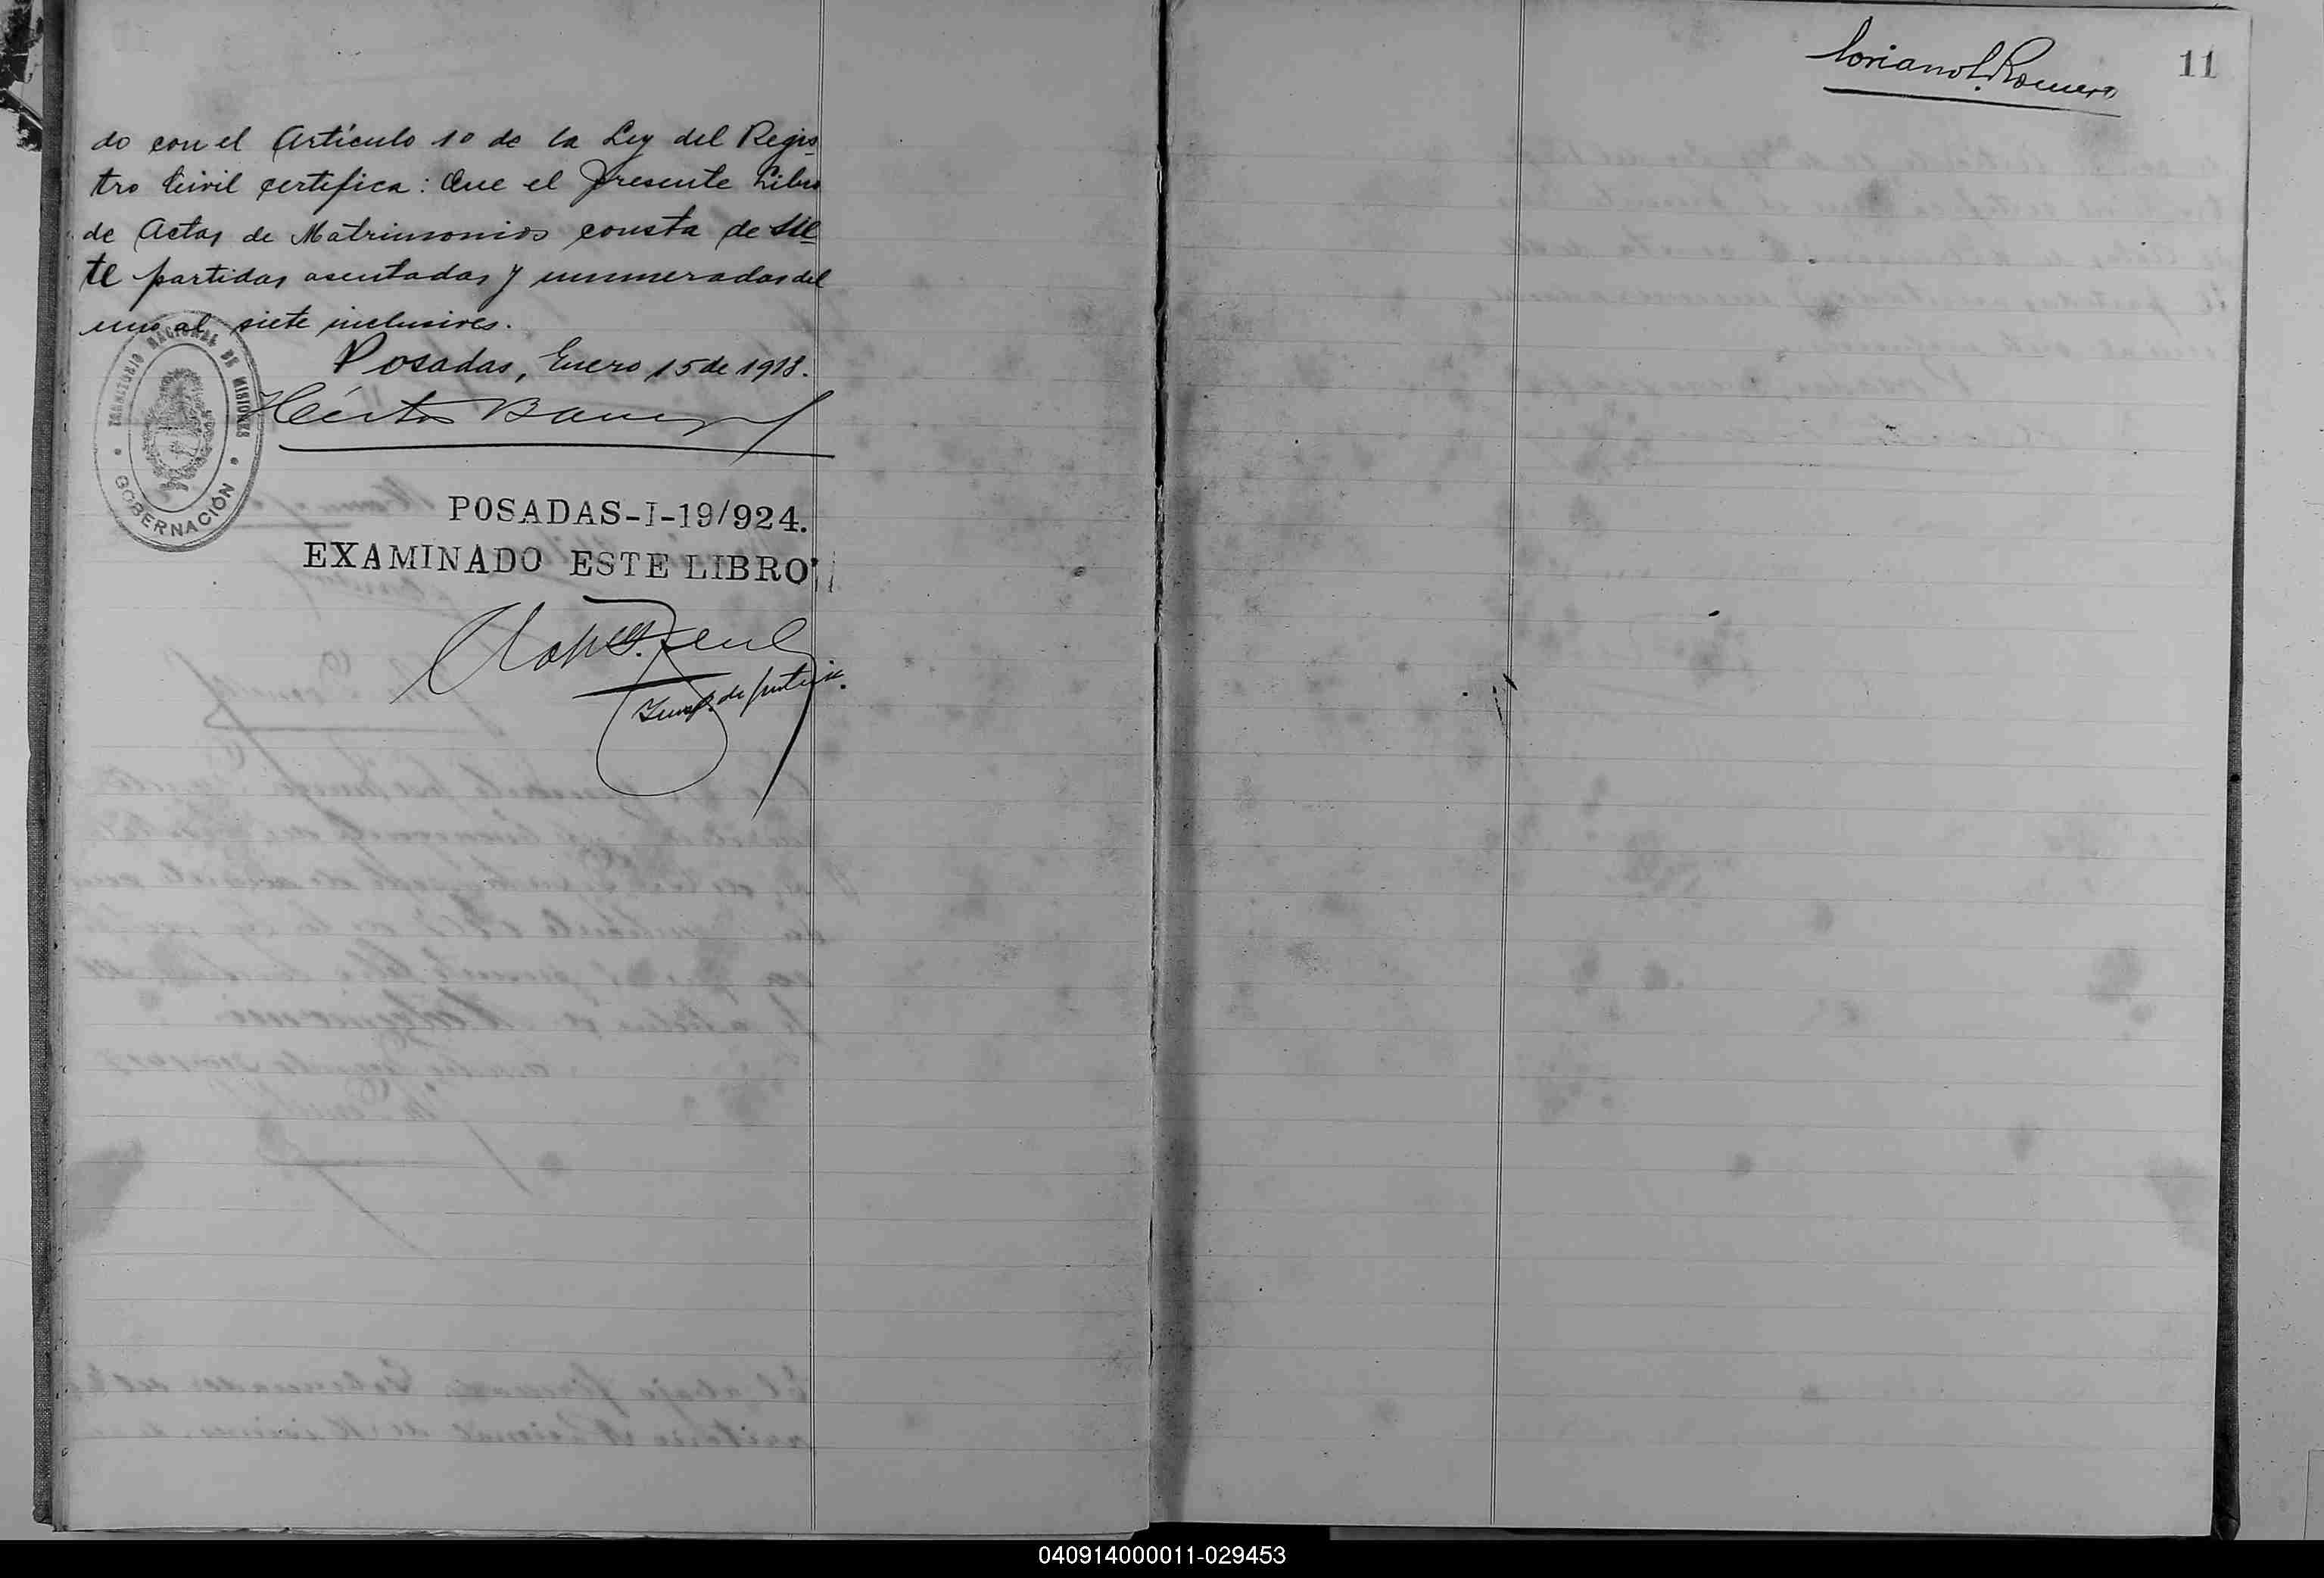 do con el Artículo 10 de la Ley del Regis
tro Civil certifica: Que el presente Libro
de Actas de Matrimonios consta de sie
te partidas asentadas y nummeradas del
uno al siete inclusives.
Posadas, Enero 15 de 1918.
Héctor
TERRITORIO NACIONAL DE MISIONES
GOBERNACIÓN
POSADAS-I-19/924.
EXAMINADO ESTE LIBRO
de Justicia.
Soriano L. Romero
11
040914000011-029453